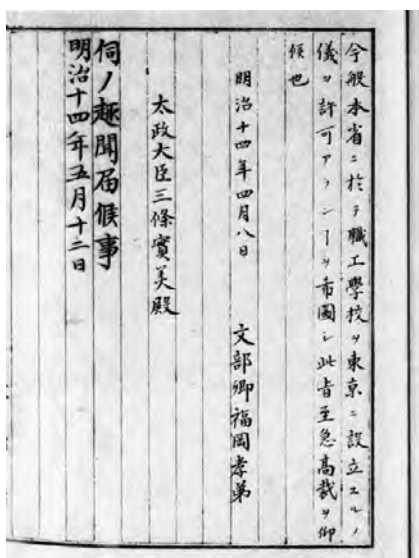 今般本省ニ於テ職工學校ヲ東京ニ設立スルノ
儀ヲ許可アランヿヲ希圖シ此旨至急高裁ヲ仰
候也
明治十四年四月八日
文部卿福岡孝弟
太政大臣三條實美殿
伺ノ趣聞届候事
明治十四年五月十二日